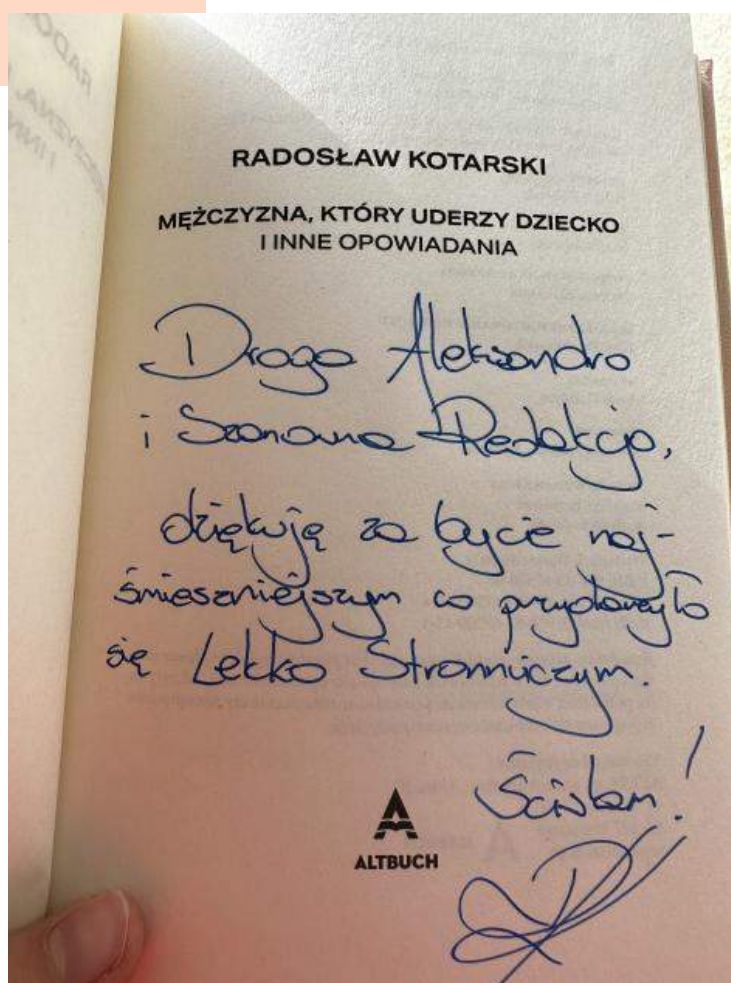 RADOSŁAW KOTARSKI
MĘŻCZYZNA, KTÓRY UDERZY DZIECKO
I INNE OPOWIADANIA
Drogo Aleksandro
i Szanowna Redakcjo,
dziękuję za bycie naj-
śmieszniejszym co przydarzyło
się Lekko Stronniczym.
Ściskam!
ALTBUCH